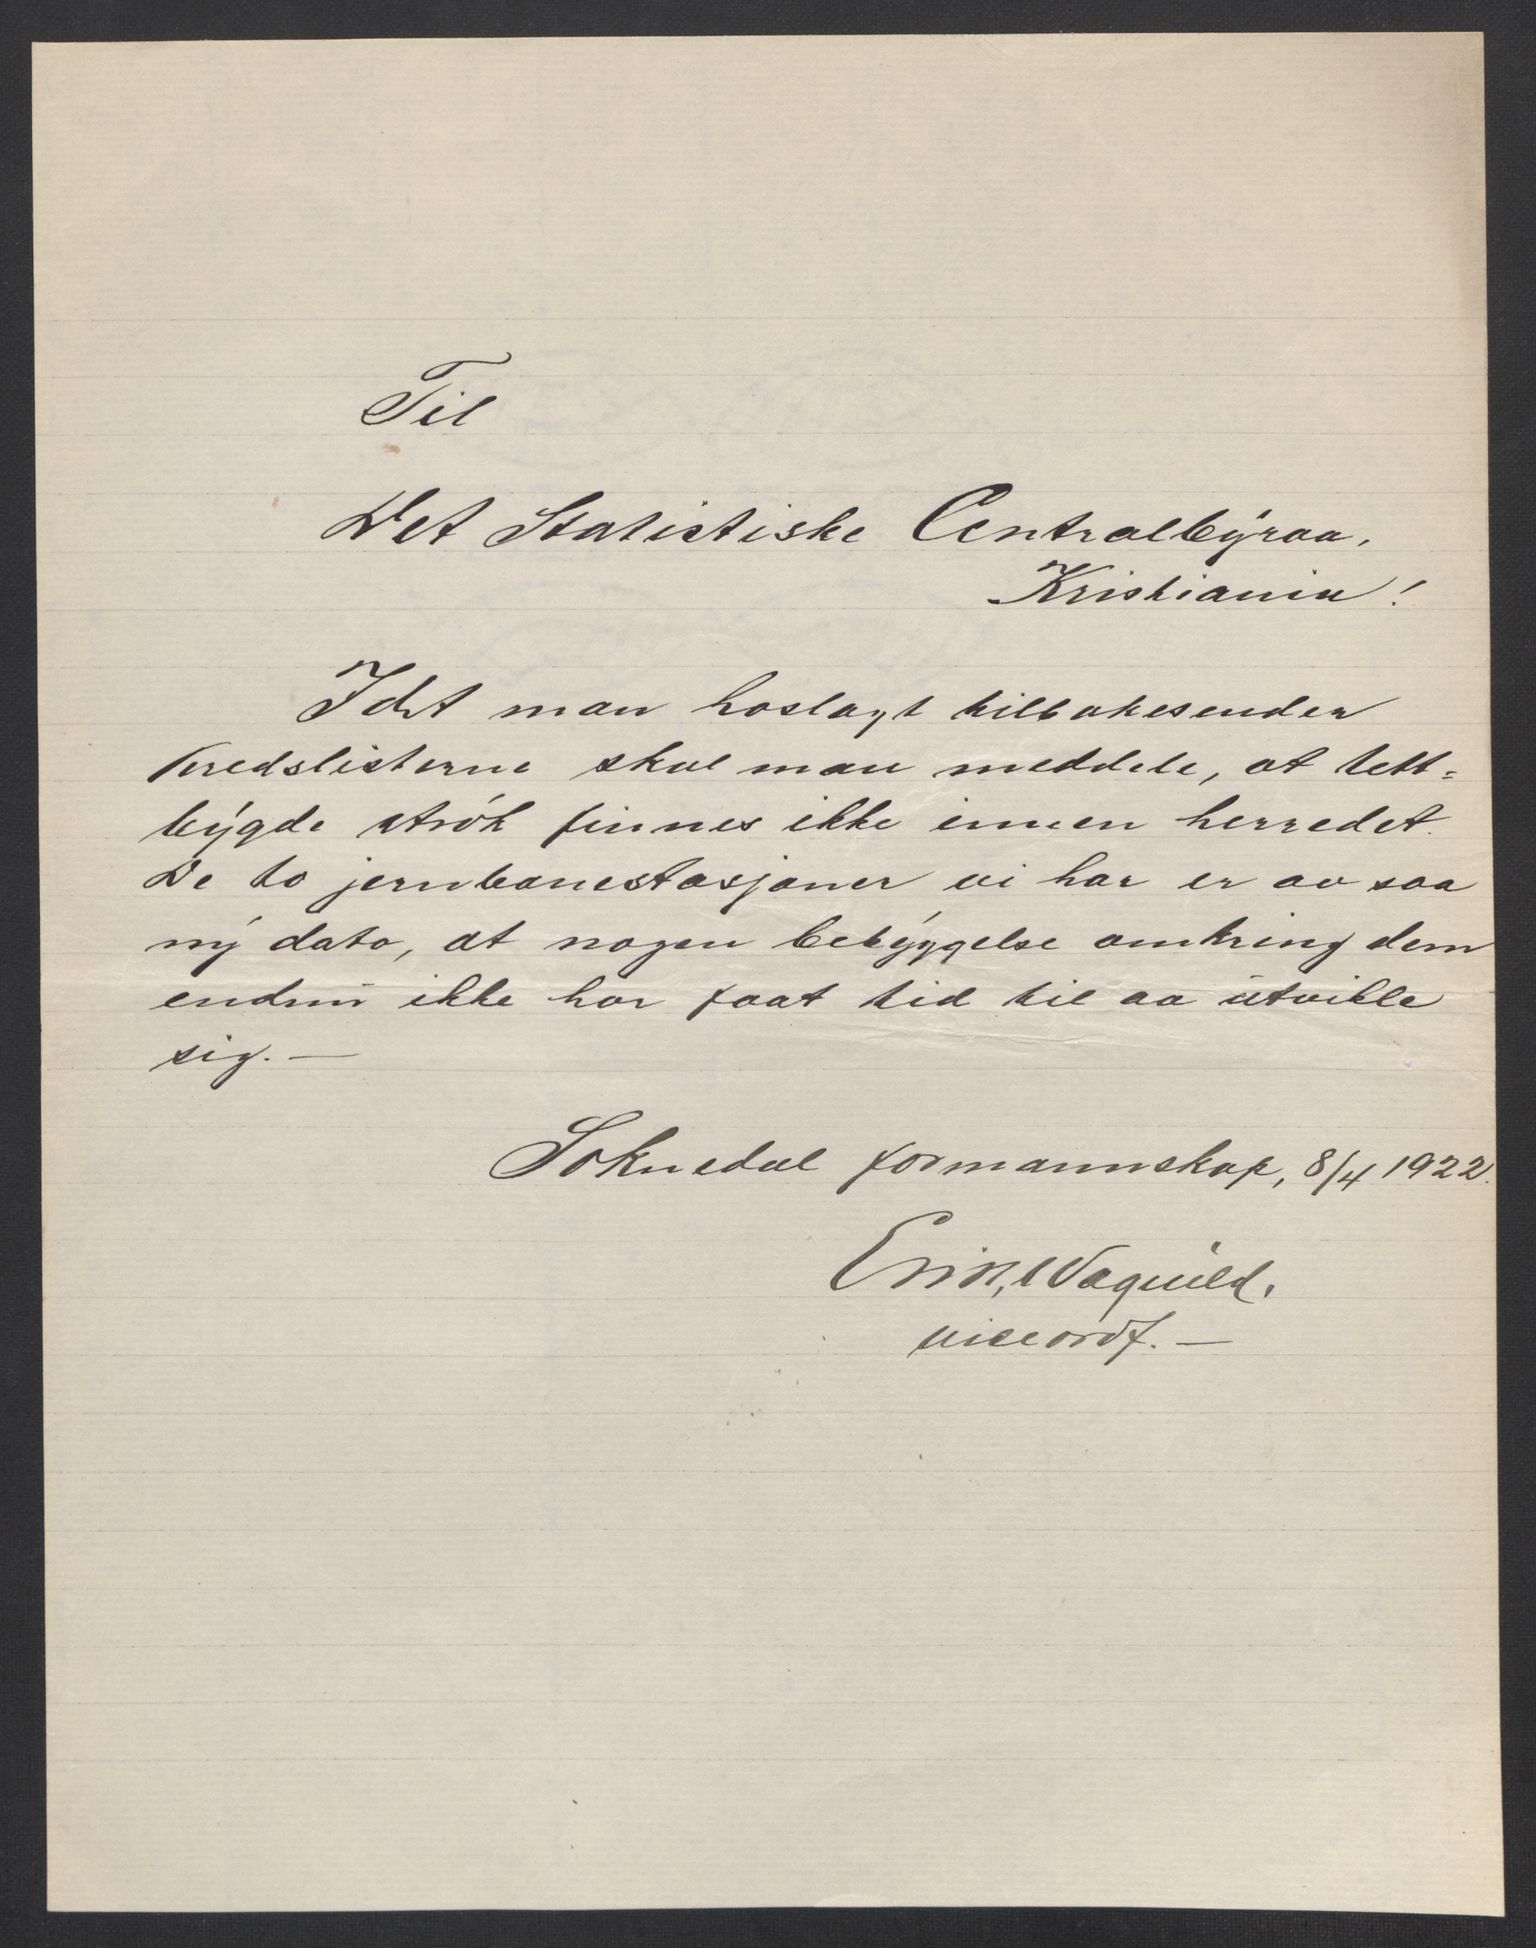 Til
Det Statistiske Centralbyraa,
Kristiania!
Idet man hoslagt tilbakesender
kredslisterne skal man meddele, at tett-
bygde strök finnes ikke innen herredet.
De to jernbanestasjoner vi har er av saa
ny dato, at nogen bebyggelse omkring dem
endnu ikke har faat tid til aa utvikle
sig. —
Soknedal formannskap, 8/4 1922.
Erik Vagnild.
viceordf. —